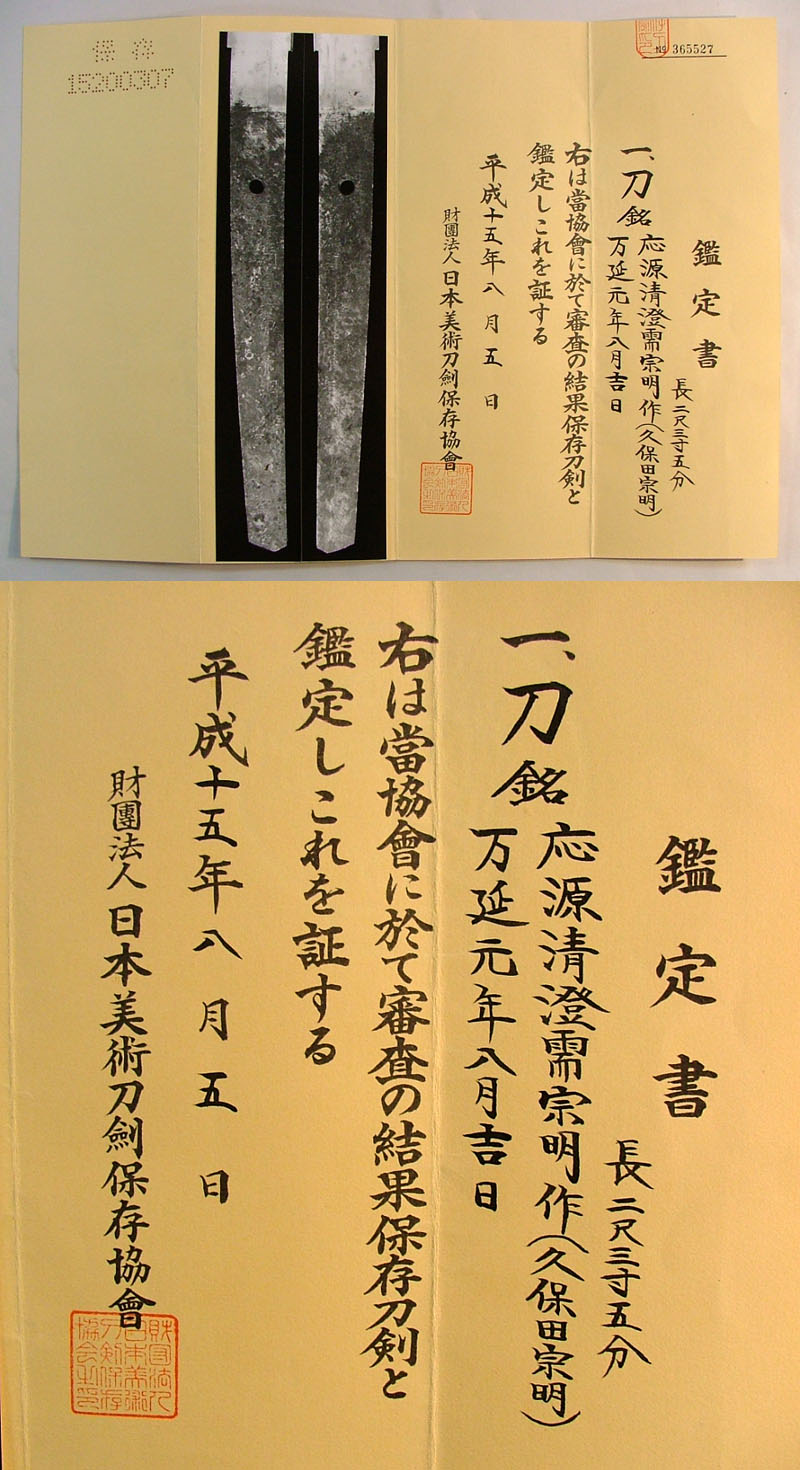 保存
15200307
№ 365527
鑑定書
長二尺三寸五分
一、刀 銘 応源清澄需宗明作(久保田宗明)
万延元年八月吉日
右は當協會に於て審査の結果保存刀剣と
鑑定しこれを証する
平成十五年八月五日
財團法人日本美術刀劍保存協會
鑑定書
長二尺三寸五分
一、刀 銘 応源清澄需宗明作(久保田宗明)
万延元年八月吉日
右は當協會に於て審査の結果保存刀剣と
鑑定しこれを証する
平成十五年八月五日
財團法人日本美術刀劍保存協會
財団法人
日本美術
刀剣保存
協会之印